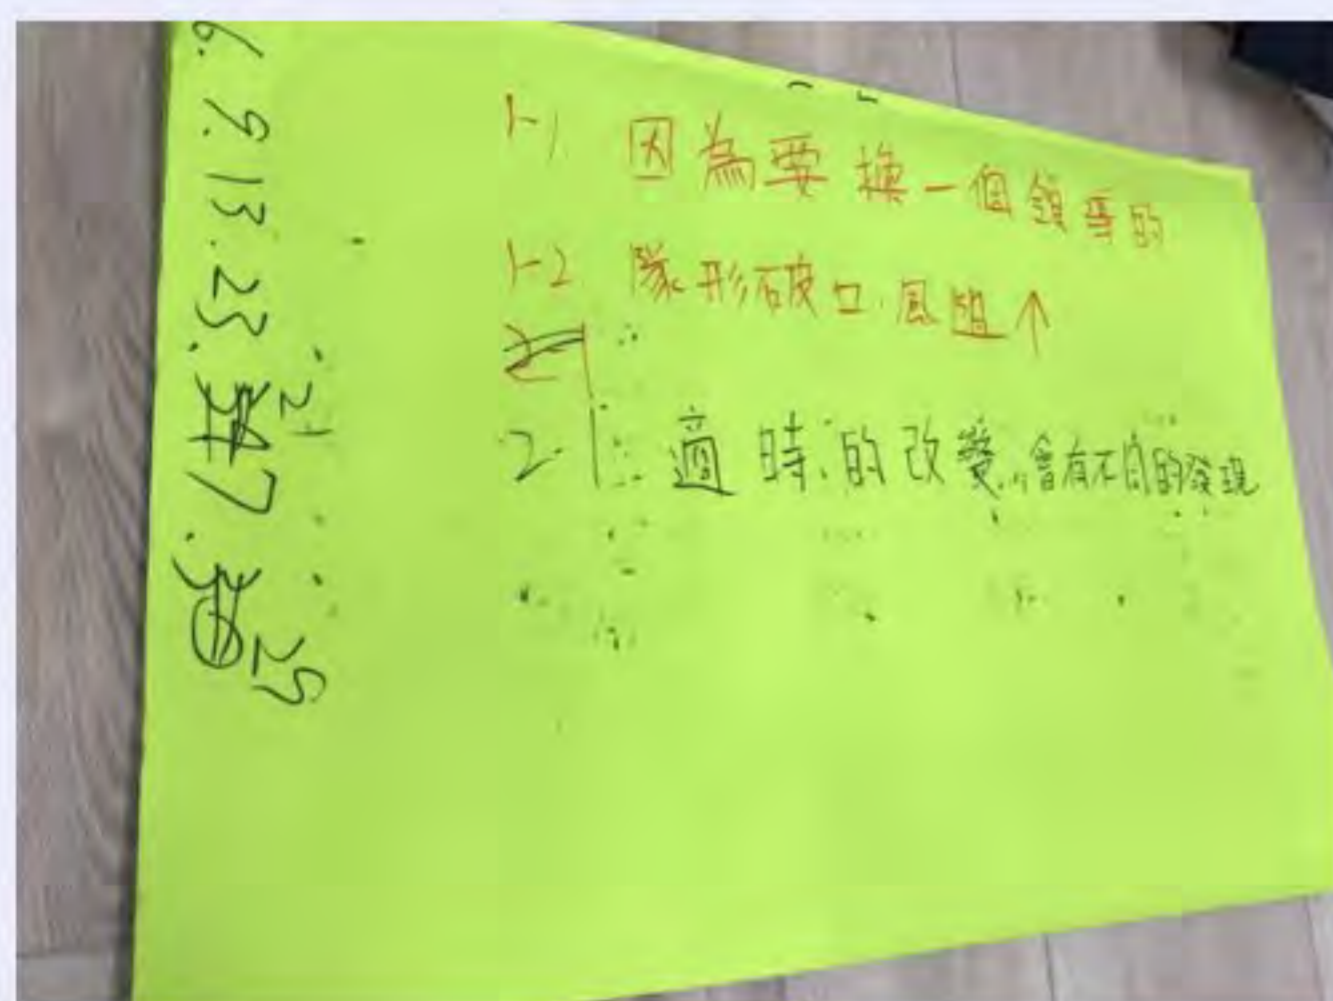 6. 9. 13. 23. 7. 21 29
1-1 因為要換一個領導的
1-2 隊形破口，風阻↑
2-1 適時的改變，會有不同的發現